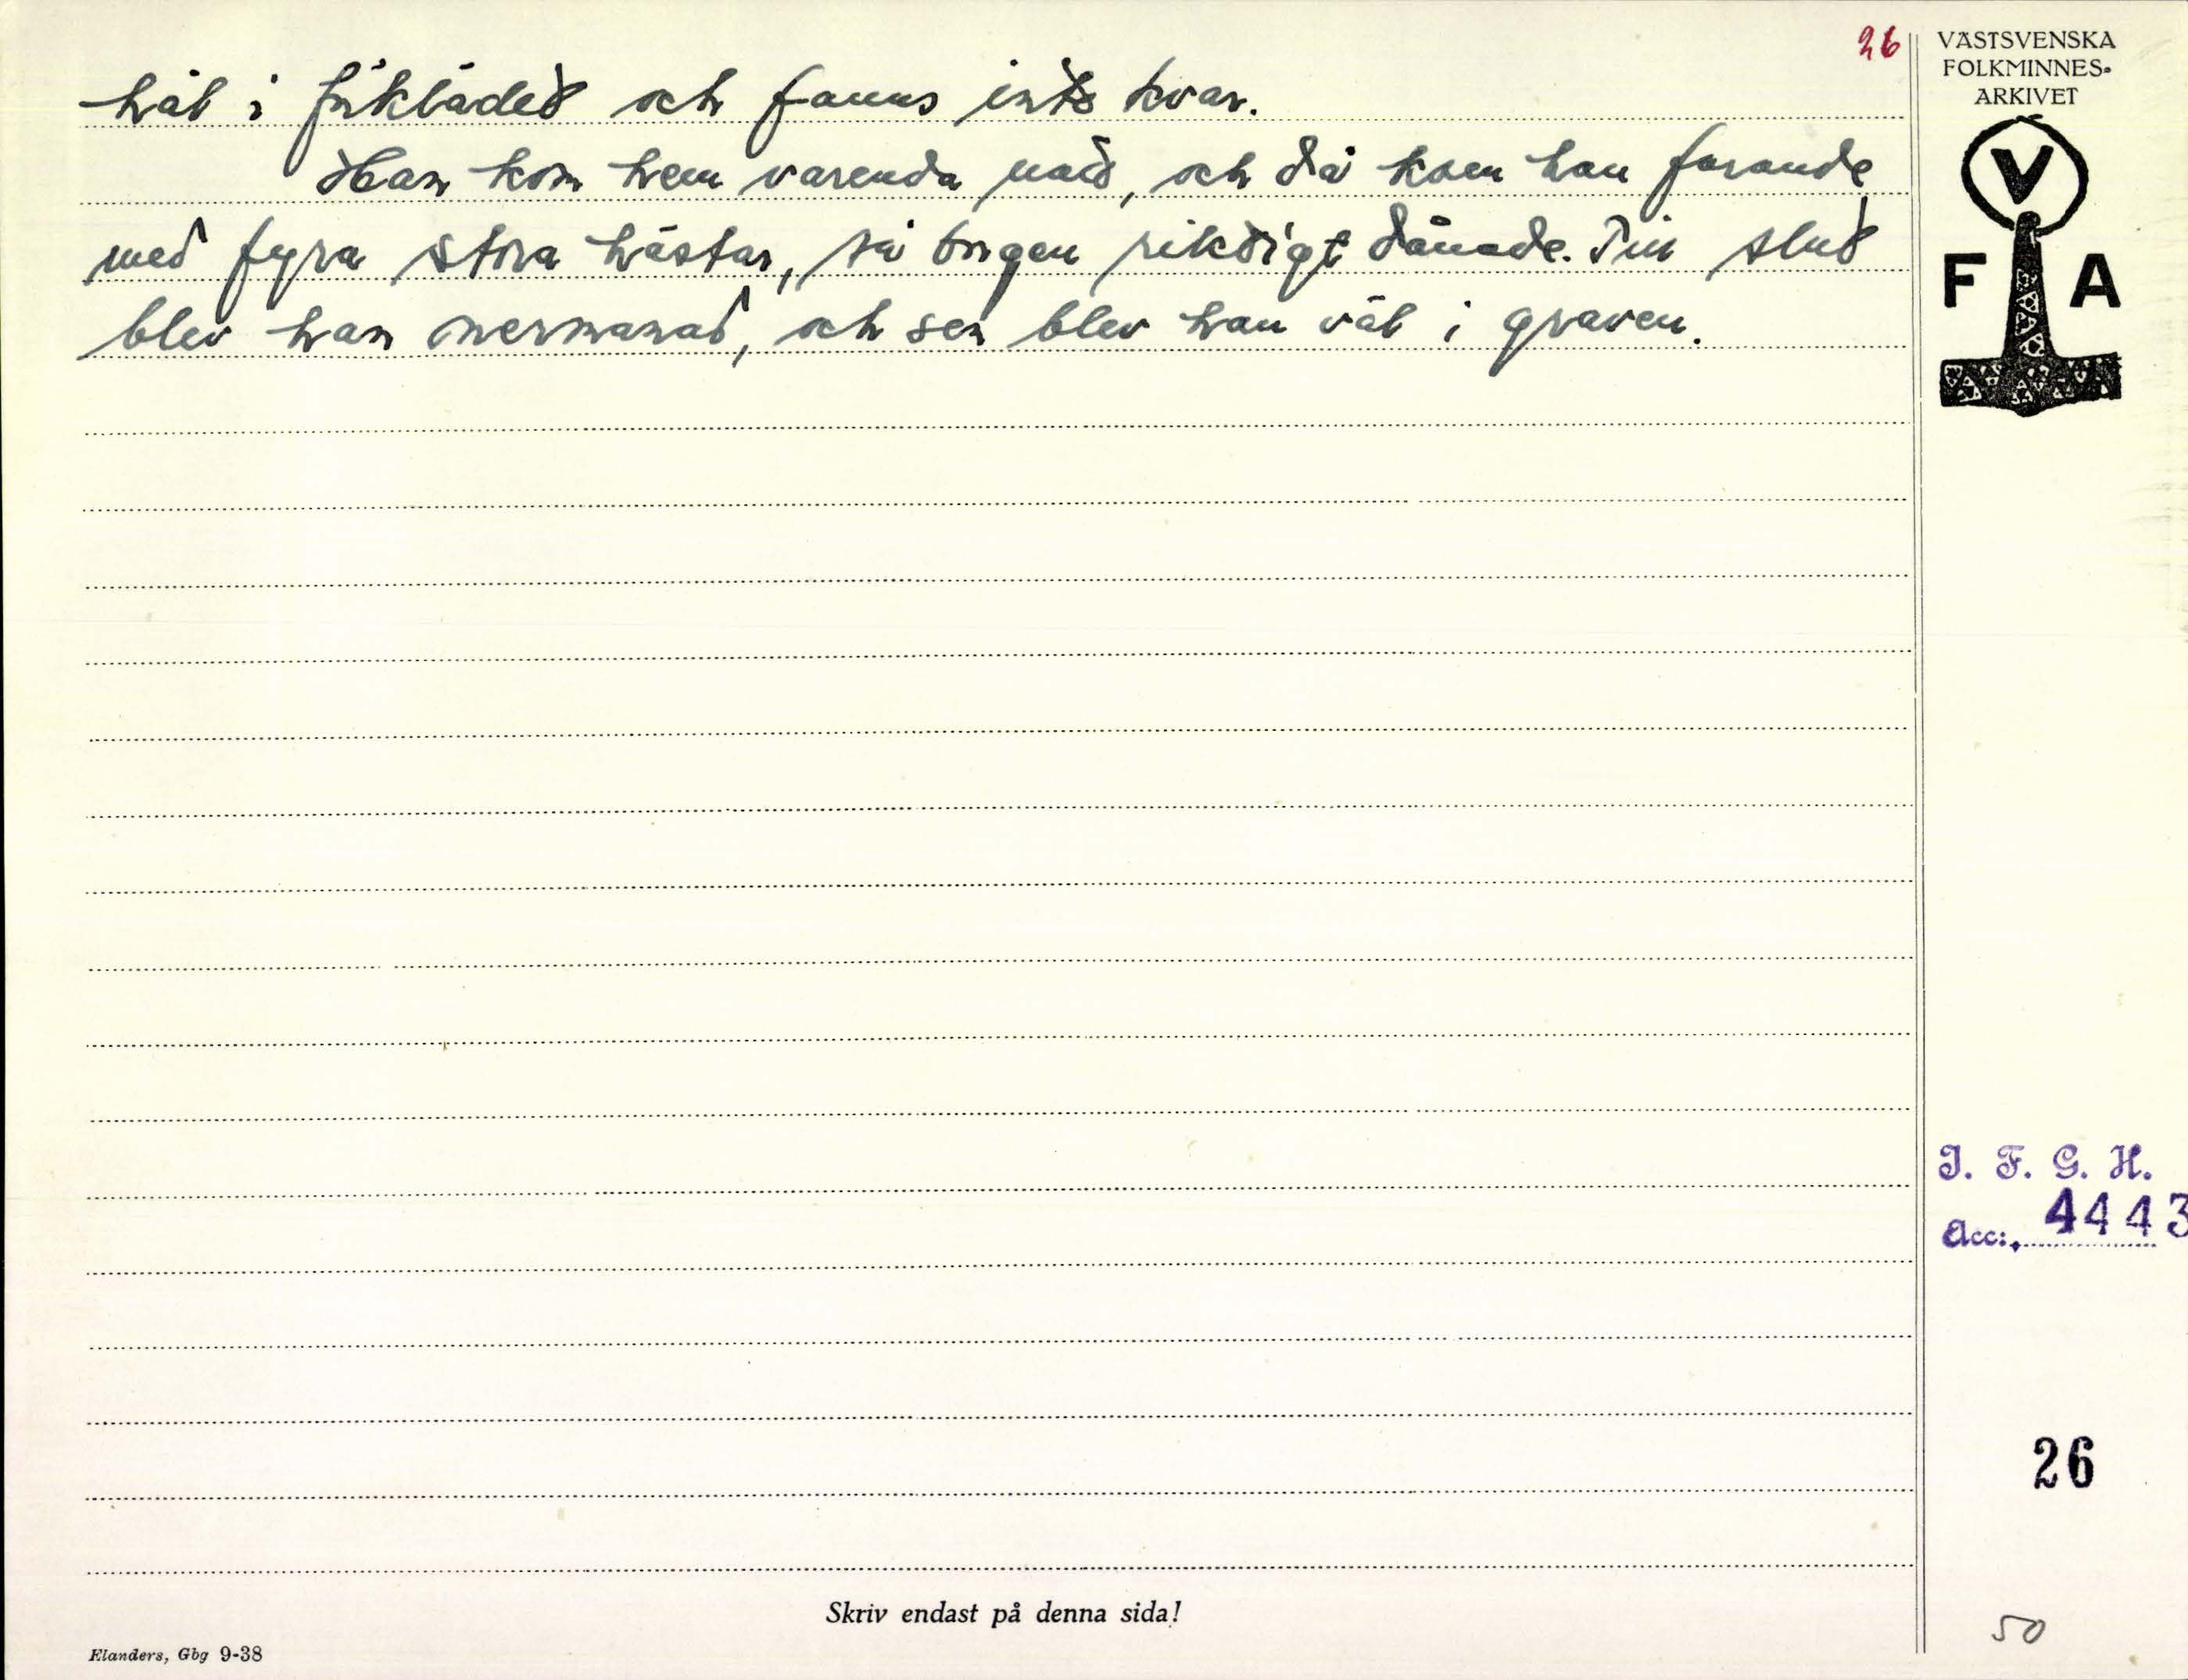 26
hål i förklädet och fanns inte kvar.
Han kom hem varenda natt, och då kom han farande
med fyra stora hästar, så borgen riktigt dånade. Till slut
blev han nermanad, och sen blev han väl i graven.
VÄSTSVENSKA
FOLKMINNES-
ARKIVET
V
F A
I. F. G. H.
Acc: 4443
26
Skriv endast på denna sida!
50
Elanders, Gbg 9-38